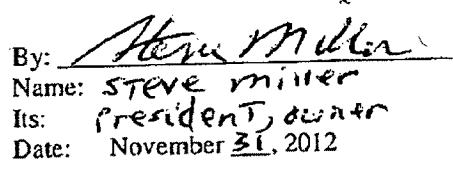 By: Steve Miller
Name: STEVE miller
Its: President, owner
Date: November 31, 2012